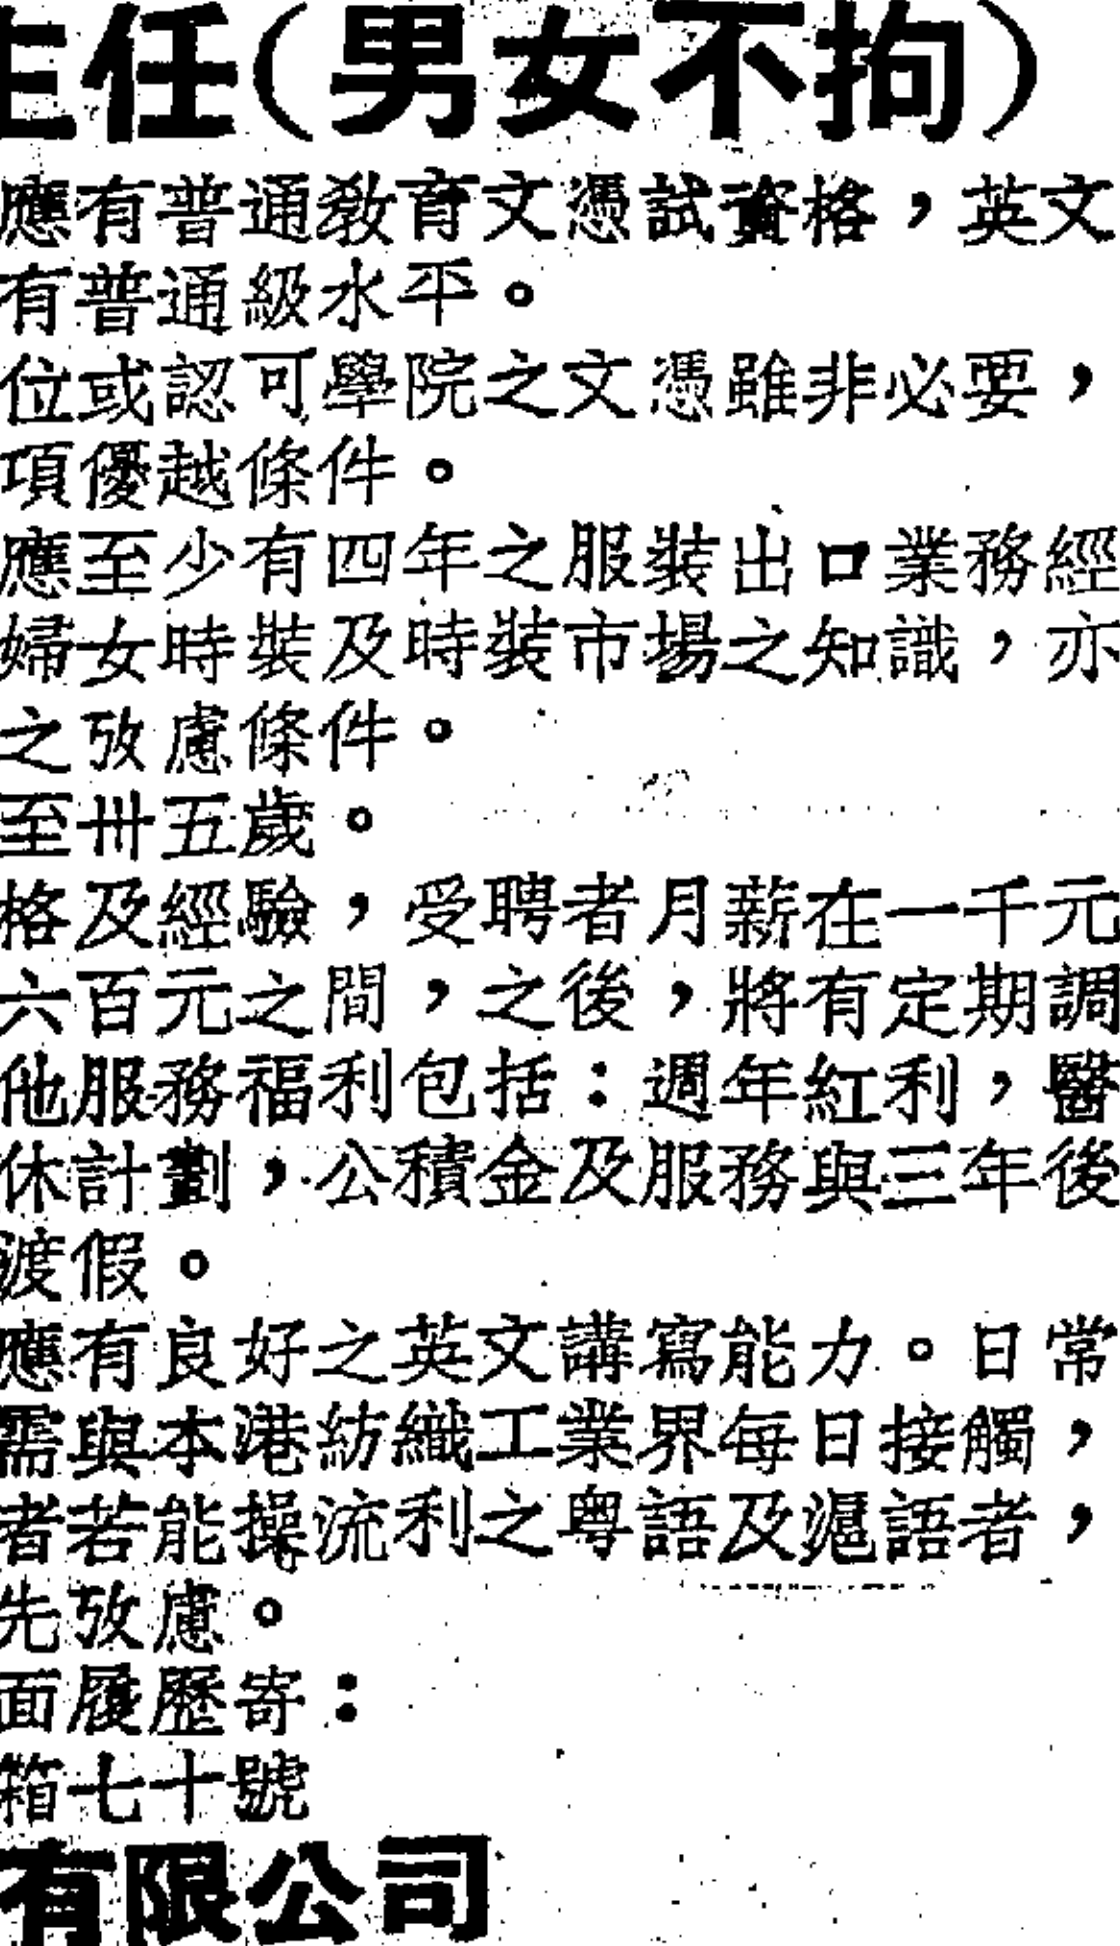 主任(男女不拘)
應有普通教育文憑試資格，英文
有普通級水平。
位或認可學院之文憑雖非必要，
項優越條件。
應至少有四年之服裝出口業務經
婦女時裝及時裝市場之知識，亦
之攷慮條件。
至卅五歲。
格及經驗，受聘者月薪在一千元
六百元之間，之後，將有定期調
他服務福利包括：週年紅利，醫
休計劃，公積金及服務與三年後
渡假。
應有良好之英文講寫能力。日常
需與本港紡織工業界每日接觸，
者若能操流利之粵語及滬語者，
先攷慮。
面履歷寄：
箱七十號
有限公司